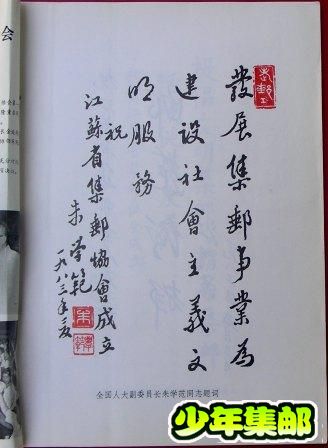 發展集郵事業為
建設社會主義文
明服務
祝
江蘇省集郵協會成立
朱學範
一九八三年三友
全国人大副委员长朱学范同志题词
少年集邮
会